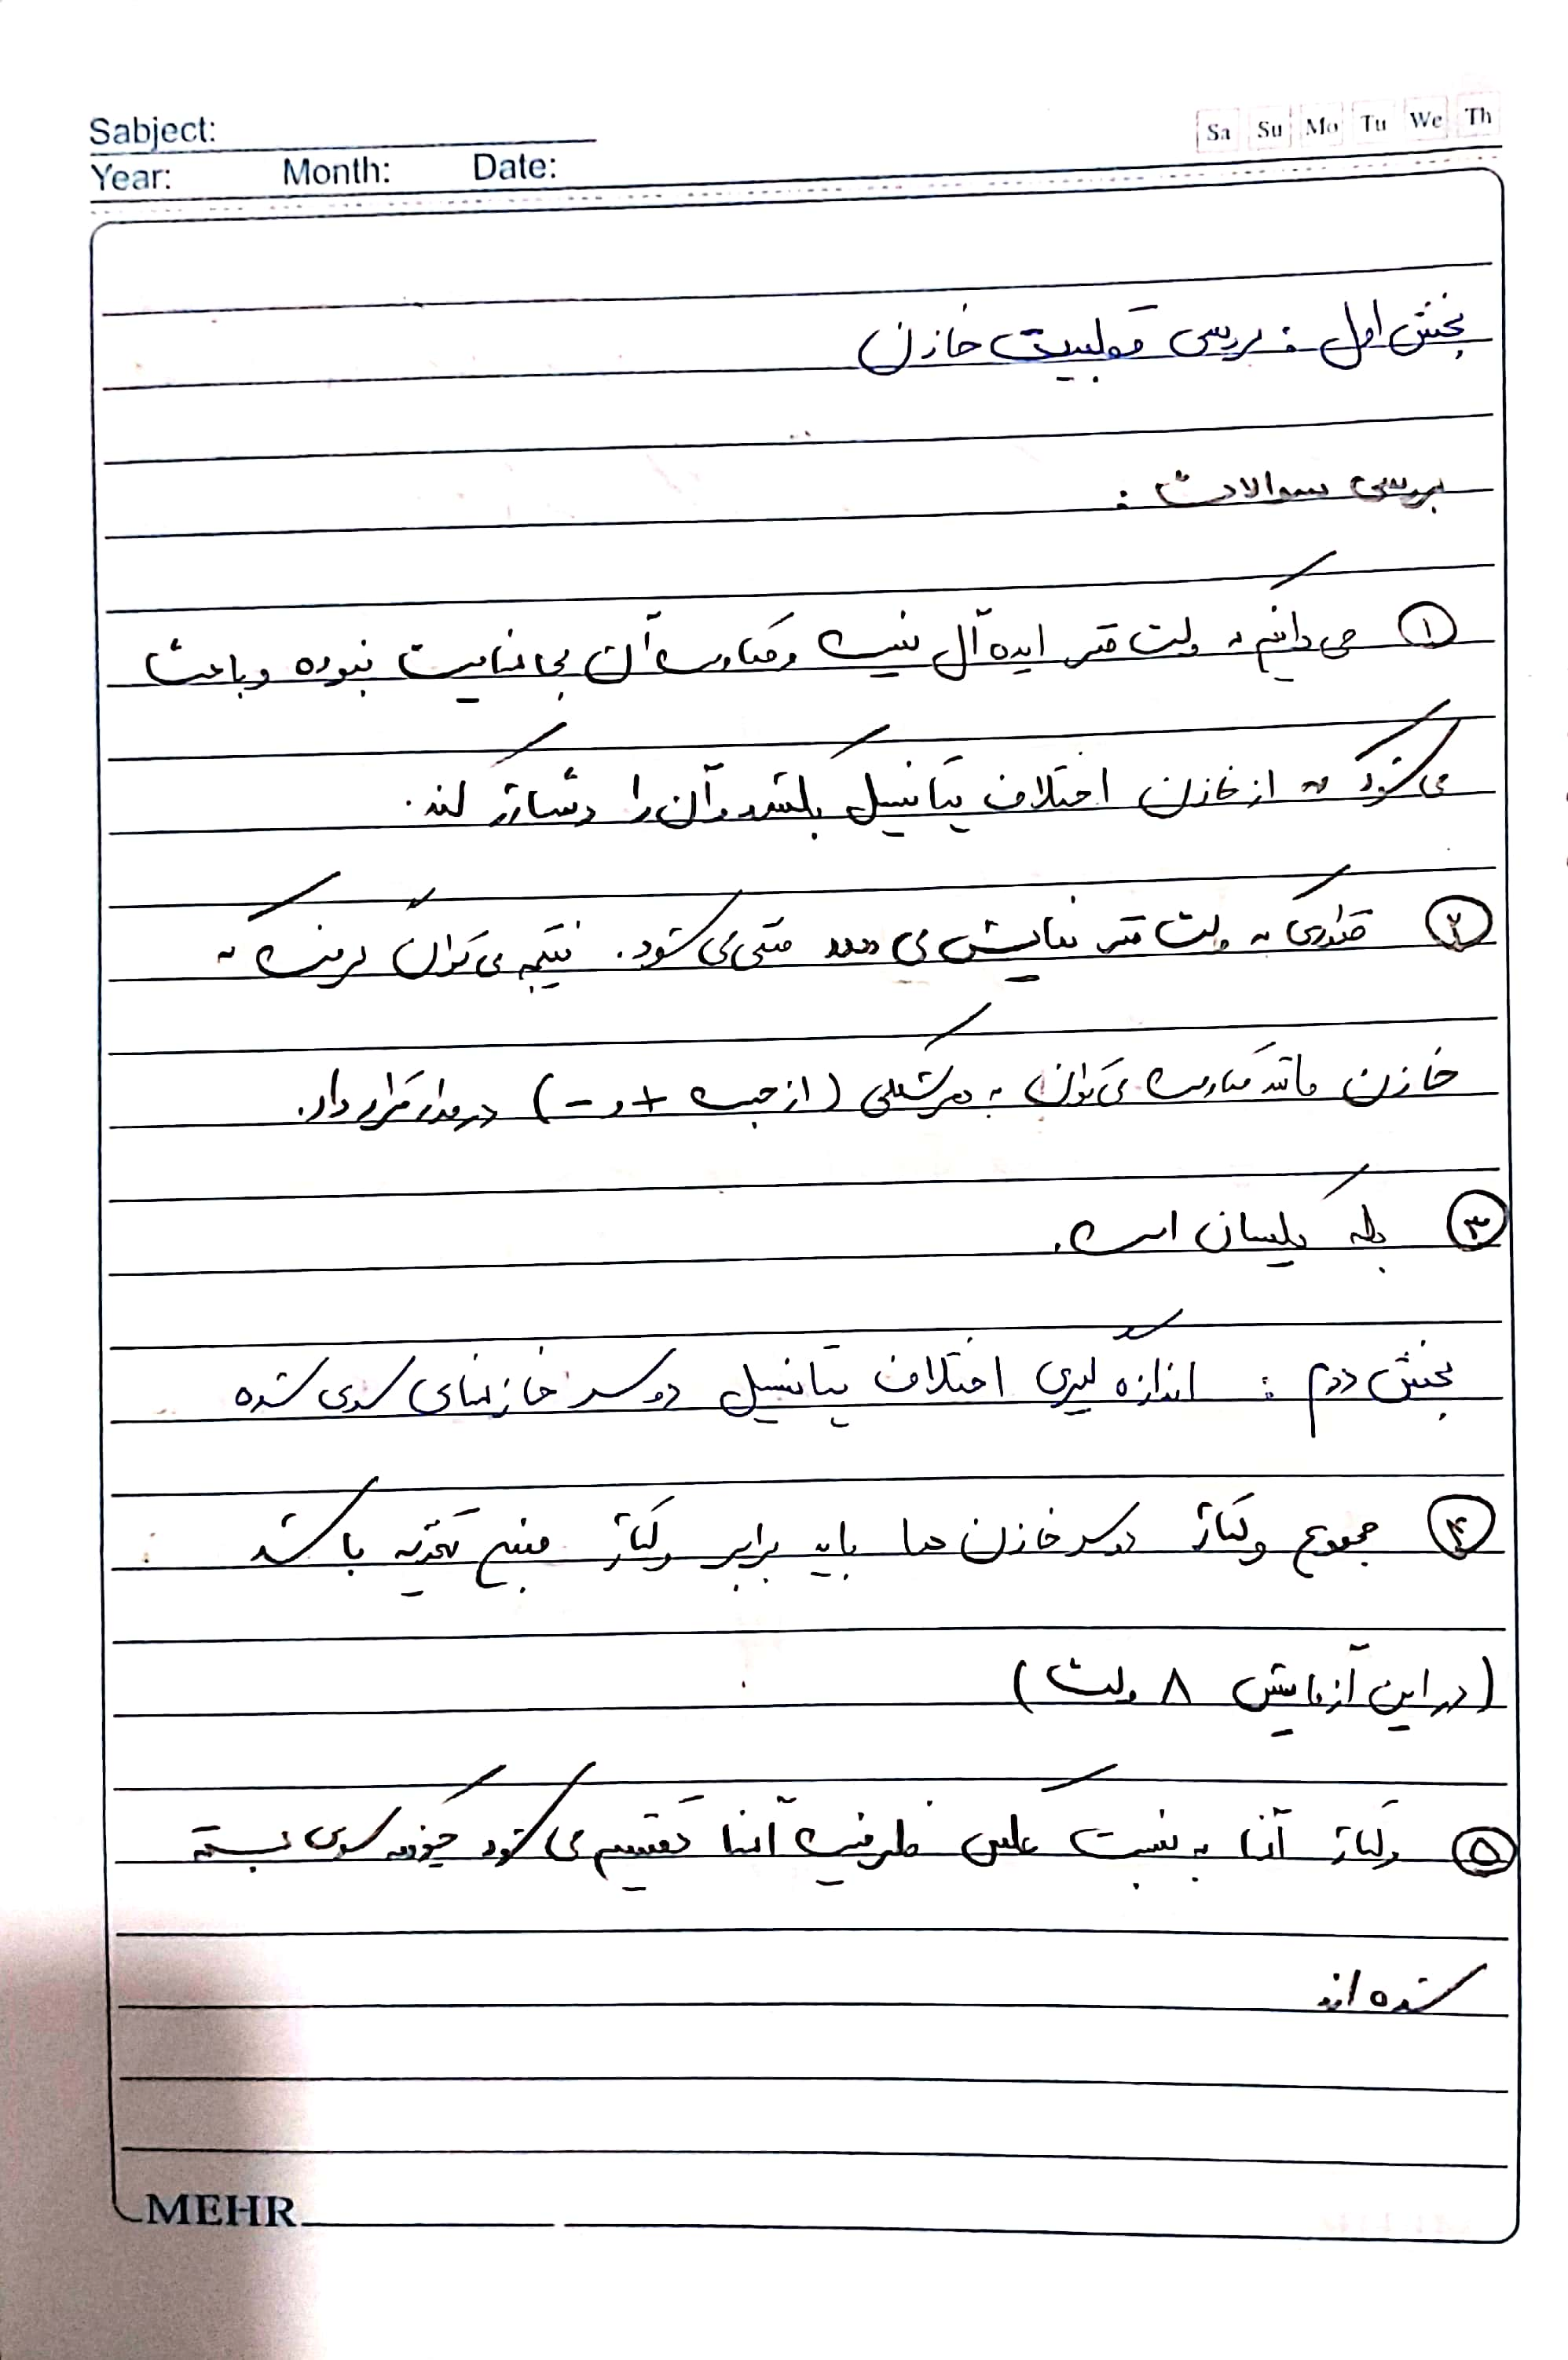 Sabject:
Sa Su Mo Tu We Th
Year: Month: Date:
بخش اول : بررسی قطبیت خازن
بررسی سوالات :
① می دانیم که ولت متر ایده آل نیست و مقاومت آن بی نهایت نبوده و باعث
می شود که از خازن اختلاف پتانسیل بکشد و آن را دشارژ کند.
② مقداری که ولت متر نمایش می دهد منفی می شود. نتیجه می توان گرفت که
خازن مانند مقاومت می توان به هر شکلی (از جهت + و -) در مدار قرار داد.
③ بله یکسان است.
بخش دوم : اندازه گیری اختلاف پتانسیل دو سر خازنهای سری شده
④ مجموع ولتاژ دو سر خازن ها باید برابر ولتاژ منبع تغذیه باشد
(در این آزمایش ۸ ولت)
⑤ ولتاژ آنها به نسبت عکس ظرفیت آنها تقسیم می شود چونکه سری بسته
شده اند
MEHR